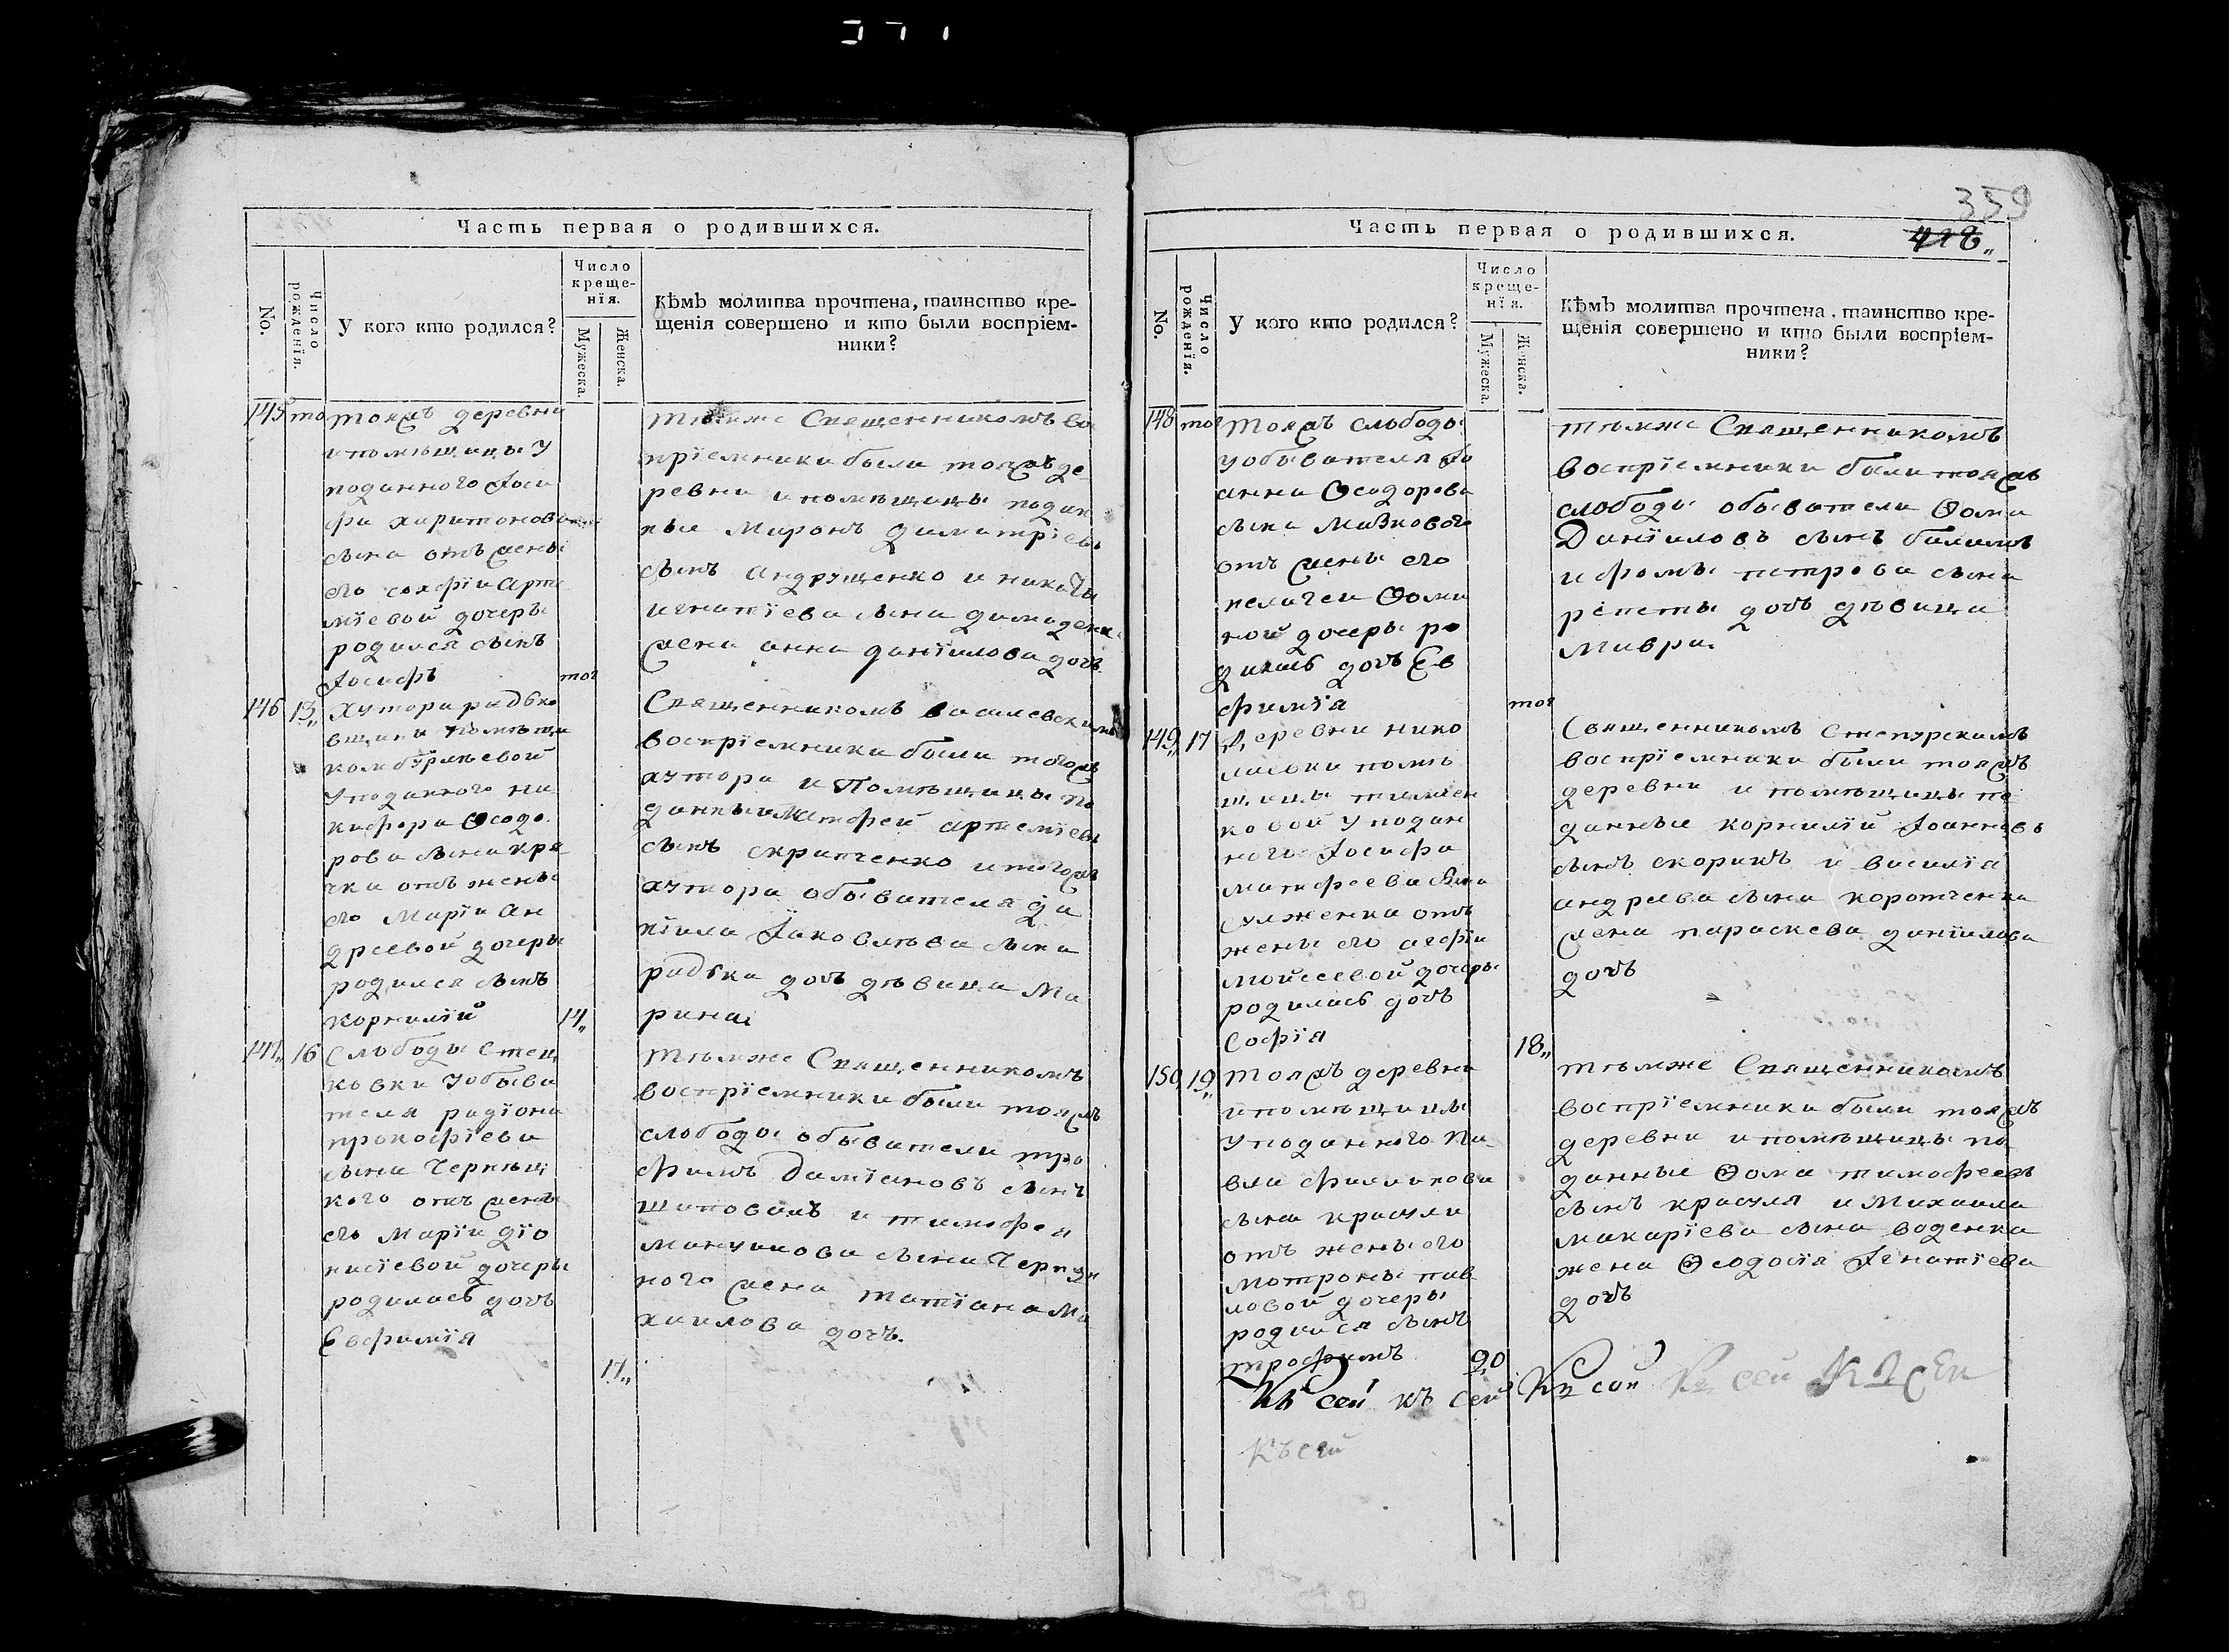 Часть первая о родившихся.
No.
Число рожденія.
У кого кто родился?
Число
креще-
нія.
Мужеска.
Женска.
Кѣмъ молитва прочтена, таинство кре-
щенія совершено и кто были воспріем-
ники?
145 то тояжъ деревни
ипомѣщицы У
поданного Іоси
фа харитонова
сына отъ жены
его софіи арте
міевой дочеры
родился сынъ
Іосифъ
тог
тѣмже Священникомъ во
пріемники были тояжъ де
ревни и помѣщицы подан
ные Миронъ димитріевъ
сынъ андрущенко и никиты
игнатіева сына
жена анна даніилова дочь
146 13„ Хутора радько
вщины помѣщи
комбурлѣевой
Уподанного ни
кифора Ѳеодо
рова сына кра
чки отъ жены
его Маріи Ан
дреевой дочеры
родился сынъ
корнилій
14„
Священникомъ василевскимъ
воспріемники были тогожъ
хутора и Помѣщицы по
данныи Матфей артеміевъ
сынъ скрипченко итогожъ
хутора обывателя да
ніила Іаковлѣва сына
радька дочь дѣвица Ма
рина
147„ 16 Слободы Стец
ковки Уобыва
теля радіона
прокофіева
сына Чернѣц
кого отъ жены
его Маріи діо
нисіевой дочеры
родилась дочь
Евфимія
17„
тѣмже Священникомъ
воспріемники были тояжъ
слободы обыватели тро
фимъ Даміановъ сынъ
шаповалъ и тимофея
мануилова сына
ного жена татіана Ми
хаилова дочь.
359
418„
Часть первая о родившихся.
No.
Число рожденія.
У кого кто родился?
Число
креще-
нія.
Мужеска.
Женска.
Кѣмъ молитва прочтена, таинство кре-
щенія совершено и кто были воспріем-
ники?
148 тог тояжъ слободы
уобывателя Іо
анна Ѳеодорова
сына Мазкового
отъ жены его
пелагеи Ѳоми
ной дочеры ро
дилась дочь Ев
фимія
тог
тѣмже Священникомъ
воспріемники были тояжъ
слободы обыватели Ѳома
Даніиловъ сынъ
и фомы петрова сына
репеты дочь дѣвица
Мавра.
149„ 17 деревни нико
лаевки помѣ
щицы тимчен
ковой Уподан
ного Іосифа
матфеева сына
сулженка отъ
жены его агафіи
мойсеевой дочеры
родилась дочь
Софія
18„
Священникомъ Степурскимъ
воспріемники были тояжъ
деревни и помѣщицы по
данные корнилій Іоанновъ
сынъ скорикъ и василія
андреева сына коротченка
жена параскева даніилова
дочь
150 19„ тояжъ деревни
ипомѣщицы
Уподанного па
вла филипова
сына красули
отъ жены его
мотроны пав
ловой дочеры
родился сынъ
трофимъ
20
тѣмже Священникомъ
воспріемники были тояжъ
деревни и помѣщицы по
данные Ѳома тимофеевъ
сынъ красуля и Михаила
макаріева сына воденка
жена Ѳеодосія Ігнатіева
дочь
Къ сей къ сей Къ сей Къ сей Къ сей
Къ сей